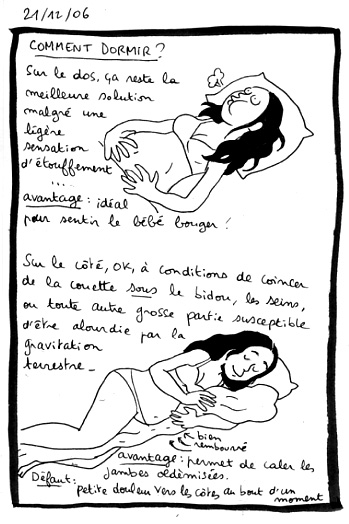 21/12/06
COMMENT DORMIR?
Sur le dos, ça reste la
meilleure solution
malgré une
légère
sensation
d'étouffement
....
avantage : idéal
pour sentir le bébé bouger !
Sur le côté, OK, à conditions de coincer
de la couette sous le bidou, les seins,
ou toute autre grosse partie susceptible
d'être alourdie par la
gravitation
terrestre_
bien
rembourré
avantage : permet de caler les
jambes oedèmisées.
Défaut :
petite douleur vers les côtes au bout d'un
moment